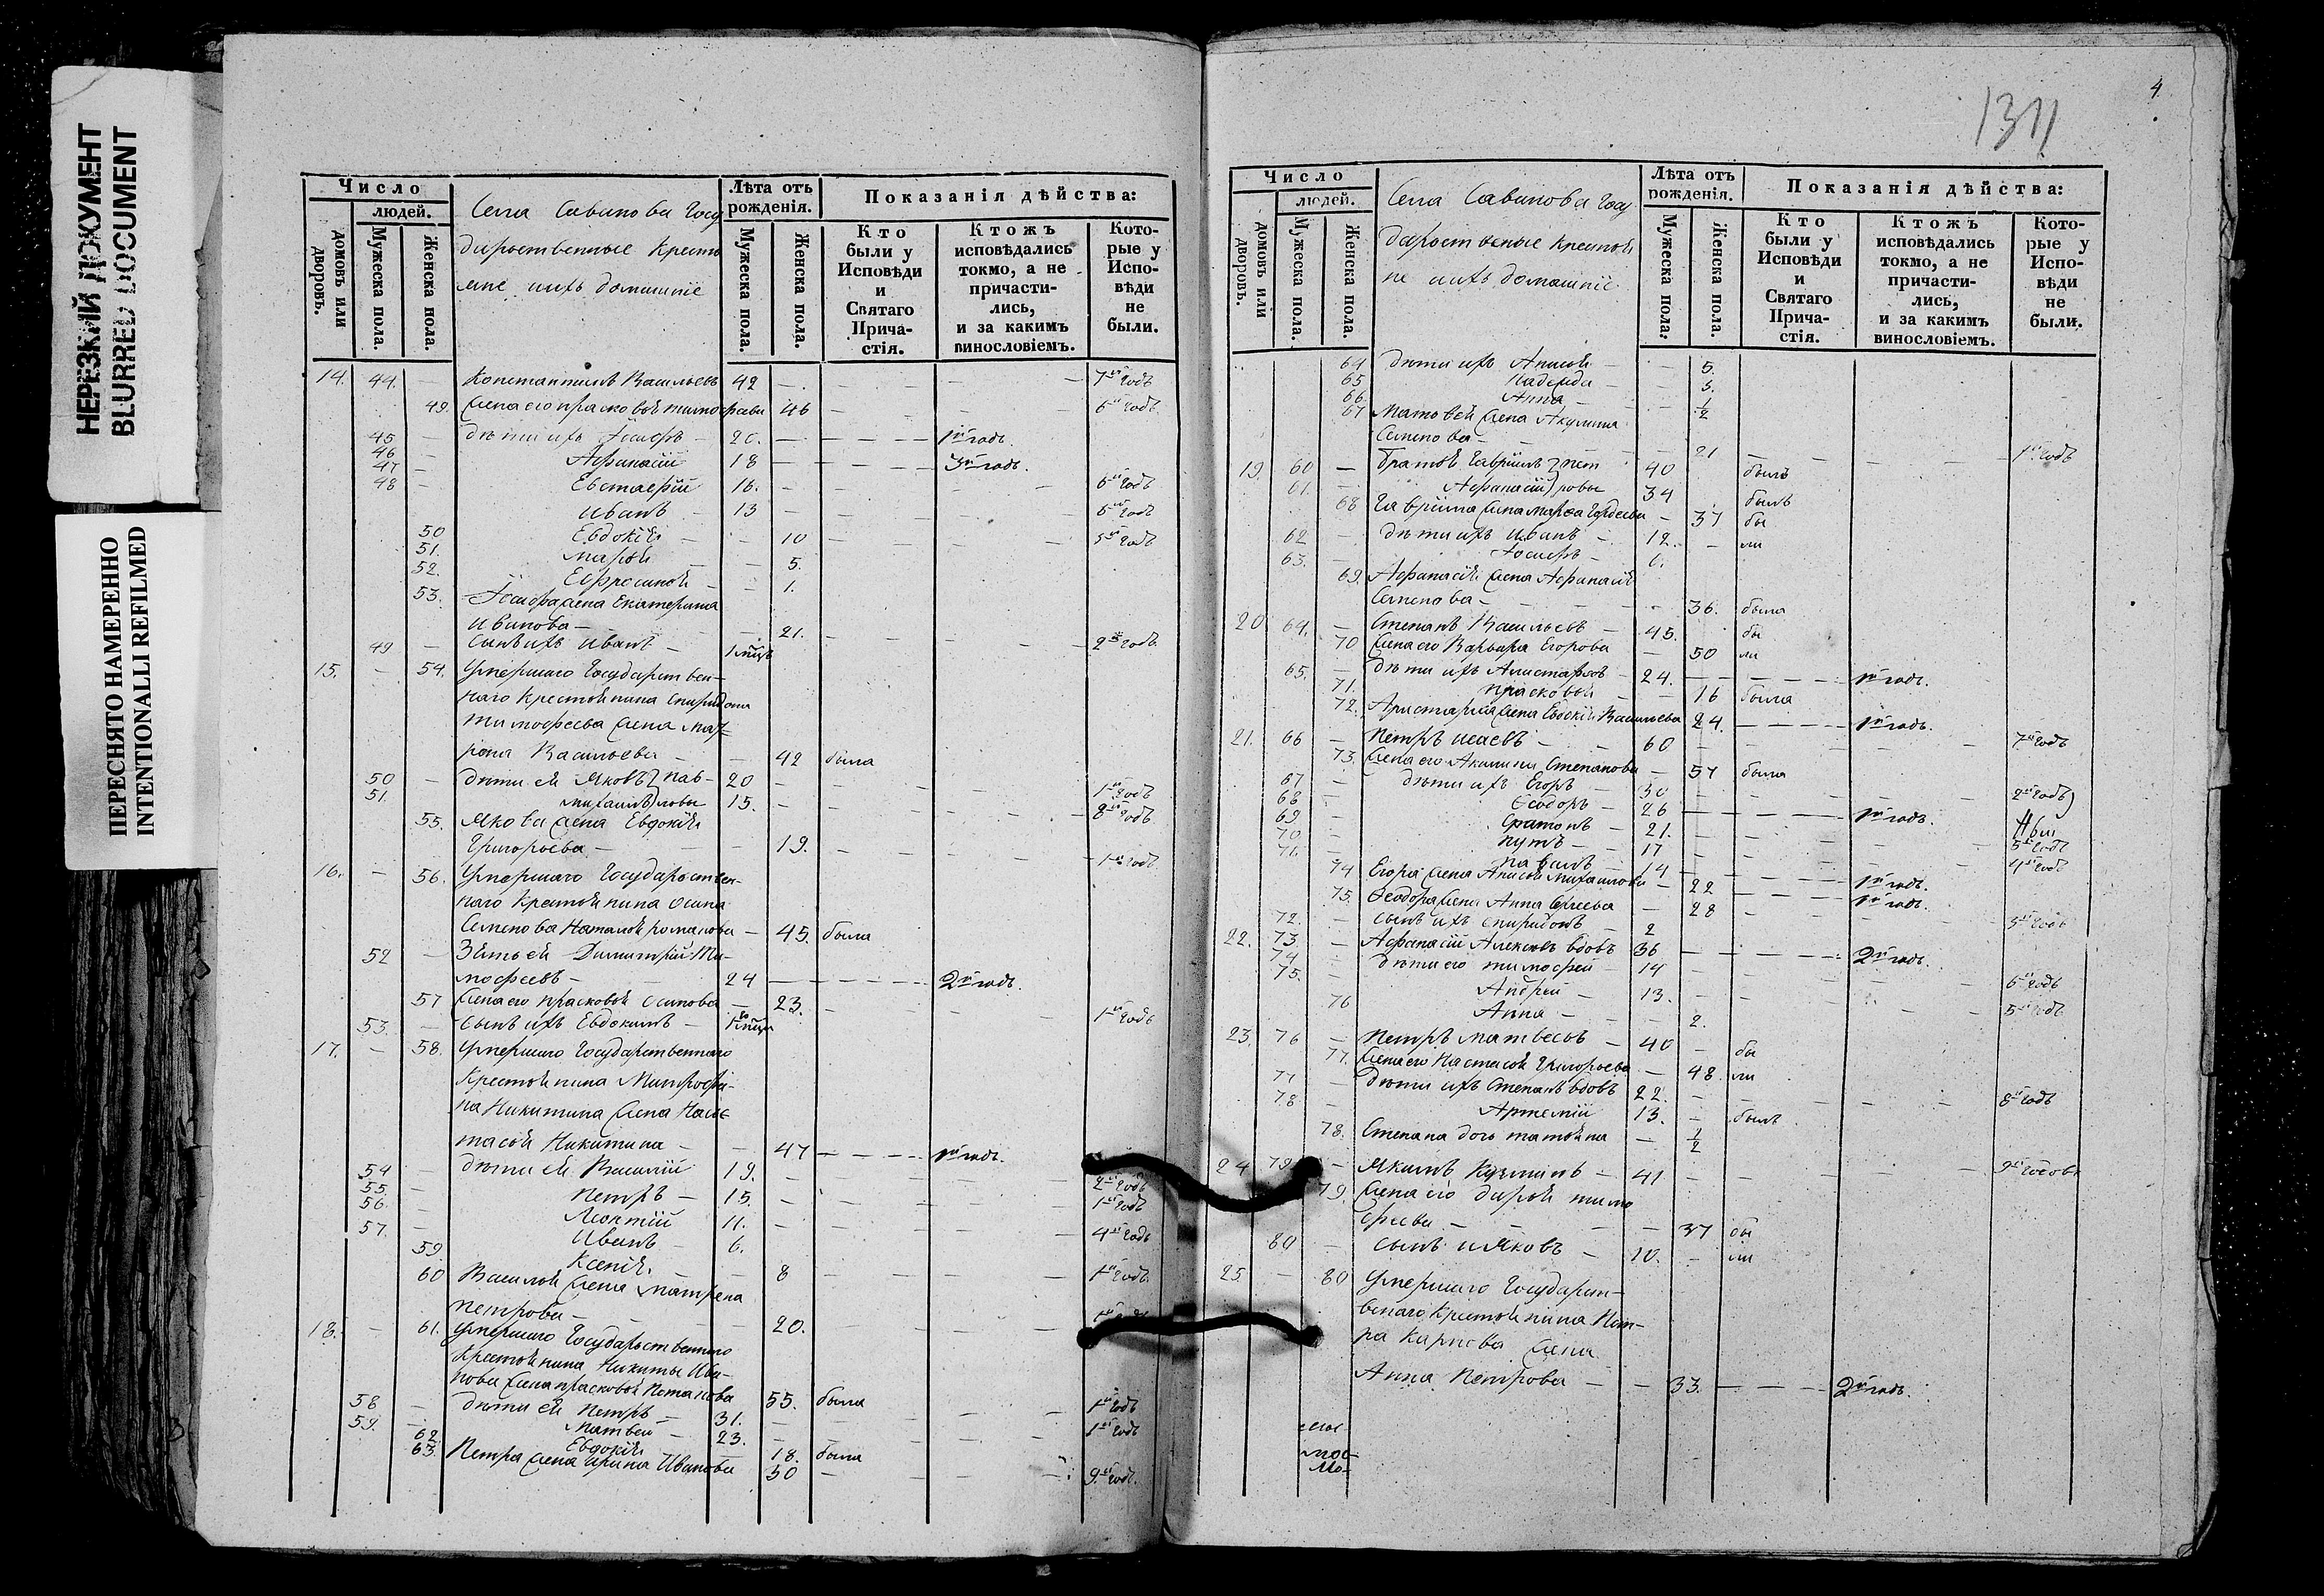 НЕРЕЗКИЙ ДОКУМЕНТ
BLURRED DOCUMENT
ПЕРЕСНЯТО НАМЕРЕННО
INTENTIONALLI REFILMED
Число
людей.
домовъ или дворовъ.
Мужеска пола.
Женска пола.
Села Савинова Госу
дарственные Кресть
яне и ихъ домашніе
Лѣта отъ рожденія.
Мужеска пола.
Женска пола.
Показанія дѣйства:
Кто были у Исповѣди и Святаго Прича-стія.
Ктожъ исповѣдались токмо, а не причасти-лись, и за какимъ винословіемъ.
Кото-рые у Испо-вѣди не были.
14. 44. Константинъ Васильевъ 42 — 7й годъ
49. Жена его Прасковья Тимофеева 46 — 6й годъ
45 — дѣти ихъ Іосифъ — 20. — 1й годъ.
46 — Афанасій 18 — 3й годъ.
47 — Евстафій 16. — 6й годъ
48 — Иванъ — 13 — 6й годъ
50 Евдокія — 10 — 3й годъ
51. Марья — 5.
52. Ефросинья — 1.
53. Іосифа жена Екатерина
Иванова — 21. — 2й годъ
49 — Сынъ ихъ Иванъ — 1 мцъ
15. — 54. Умершаго Государствен-
наго Крестьянина Спиридона
Тимофеева жена Мат-
рона Васильева — 42 была
50 — дѣти ея Яковъ Пав- 20 — 1й годъ
51. Михаилъ ловы 15. — 8й годъ
55. Якова жена Евдокія
Григорьева — 19. — 1й годъ
16. — 56. Умершаго Государствен-
наго Крестьянина Осипа
Семенова Наталья Романова — 45. была
52 — Зять ея Димитрій Ти-
мофеевъ — 24 — 2й годъ.
57 Жена его Прасковья Осипова — 23. — 1й годъ
53. — Сынъ ихъ Евдокимъ —
17. — 58. Умершаго Государственнаго
Крестьянина Митрофа-
на Никитина жена Нас-
тасья Никитина — 47 — 1й годъ.
54 — дѣти ея Василій 19. — 2й годъ
55. — Петръ — 15. — 1й годъ
56. — Леонтій 11. — 4й годъ
57. — Иванъ — 6.
59. Ксенія — 8 — 1й годъ.
60 Василья жена Матрена
Петрова — 20. — 1й годъ
18. — 61. Умершаго Государственнаго
Крестьянина Никиты Ива-
нова жена Прасковья Потапова 55. была
58 дѣти ея Петръ — 31. — 1й годъ
59. — Матвей — 23. — 1й годъ
62 Евдокія — 18. была
63. Петра жена Ирина Иванова 30 — 9й годъ.
4
1311
Число
людей.
домовъ или дворовъ.
Мужеска пола.
Женска пола.
Села Савинова Госу
дарственые Крестья
не и ихъ домашніе
Лѣта отъ рожденія.
Мужеска пола.
Женска пола.
Показанія дѣйства:
Кто были у Исповѣди и Святаго Прича-стія.
Ктожъ исповѣдались токмо, а не причасти-лись, и за какимъ винословіемъ.
Кото-рые у Испо-вѣди не были.
64 дѣти ихъ Анисья — 5.
65 Надежда — 3.
66. Анна — 1/2
67 Матовея жена Акулина
Семенова — 21 — 1й годъ
19. 60 — братья Гавріилъ Пет 40 былъ
61. — Афанасій ровы 34 былъ
68 Гавріила жена Марфа Гордеева — 37 бы
62 — дѣти ихъ Иванъ — 12. — ли
63. Іосифъ — 6.
69. Афанасія жена Афанасія
Семенова — 36. была
20 64. — Степанъ Васильевъ — 45. бы
70 Жена его Варвара Егорова — 50 ли
65. — дѣти ихъ Алистархъ — 24. — 1й годъ.
71. Прасковья — 16 была
72. Аристарха жена Евдокія Васильева 24. — 1й годъ.
21. 66 — Петръ Исаевъ — 60 — 7й годъ
73. Жена его Акилина Степанова — 57 была
67 — дѣти ихъ Егоръ — 30 — 2й годъ
68 — Ѳеодоръ — 26 — 1й годъ.
69 — 21.
70 — 17 — 5й годъ
71. — Павелъ — 14 — 4й годъ
74 Егора жена Анисья Михайлова — 22 — 1й годъ.
75. Ѳеодора жена Анна Сергеева — 28 — 1й годъ.
72. — Сынъ ихъ Спиридонъ — 2 3й годъ
22. 73 — Афанасій Алексеевъ вдовъ 36 — 2й годъ.
74 — дѣти его Тимофей — 14 — 6й годъ
75. — Андрей — 13. — 5й годъ
76 Анна — 2.
23. 76 — Петръ Матвеевъ — 40 — бы
77. Жена его Настасья Григорьева — 48. ли
77 — дѣти ихъ Степанъ вдовъ 22. — 8й годъ
78 — Артемій 13. — былъ
78. Степана дочь Татьяна — 1/2
24 79 — Якимъ Кузминъ — 41 — 9й годовъ
79. Жена его Дарья Тимо
феева — 37 бы
80 — Сынъ ихъ Яковъ — 10. — ли
25. — 80 Умершаго Государст-
веннаго Крестьянина Пет-
ра Карпова жена
Анна Петрова — 33. — 2й годъ.